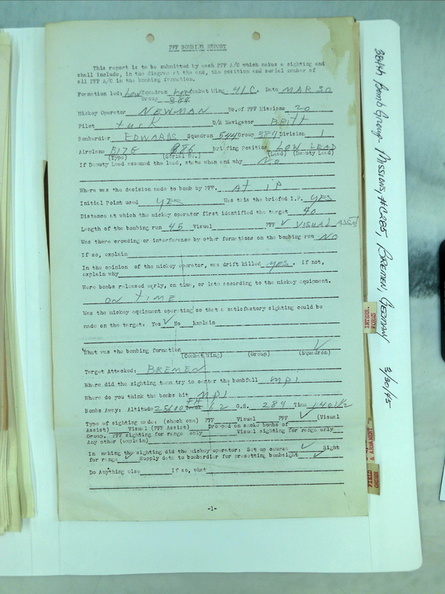 PFF BOMBING REPORT
This report is to be submitted by each PFF A/C which makes a sighting and
shall include, in the diagram at the end, the position and serial number of
all PFF A/C in the bombing formation.
Formation led: Low Squadron Wing 41C Date MAR 30
Group 384
Mickey Operator NEWMAN No. of PFF Missions 20
Pilot D/R Navigator
Bombardier EDWARDS Squadron 544 Group 384 Division 1
Airplane B17G 986 Briefing Position LOW LEAD
(Type) (Serial No.) (Lead) (Deputy Lead)
If Deputy Lead assumed the lead, state when and why NO
Where was the decision made to bomb by PFF. AT IP
Initial Point used yes Was this the briefed I.P. yes
Distance at which the mickey operator first identified the target 40
Length of the bombing run 45 Visual PFF ✓ VISUAL ASSIST
Was there crowding or interference by other formations on the bombing run NO
If so, explain
In the opinion of the mickey operator, was drift killed yes. If not,
explain why
Were bombs released early, on time, or late according to the mickey equipment.
ON TIME
Was the mickey equipment operating so that a satisfactory sighting could be
made on the target: Yes ✓ No Explain
What was the bombing formation ✓
(Combat Wing) (Group) (Squadron)
Target Attacked: BREMEN
Where did the sighting team try to center the bombfall MPI
Where do you think the bombs hit MPI
Bombs Away: Altitude G.S. 289 Time
Type of sighting used: (check one) PFF Visual PFF ✓ (Visual
Assist) Visual (PFF Assist) Dropped on smoke bombs of
Group. PFF sighting for range only Visual sighting for range only
Any other (explain)
In making the sighting did the mickey operator: Set up course ✓ Sight
for range ✓ Supply data to bombardier for presetting bombsight ✓
Do Anything else If so, what
-1-
384th Bomb Group - Missions, Bremen, Germany 3/30/45